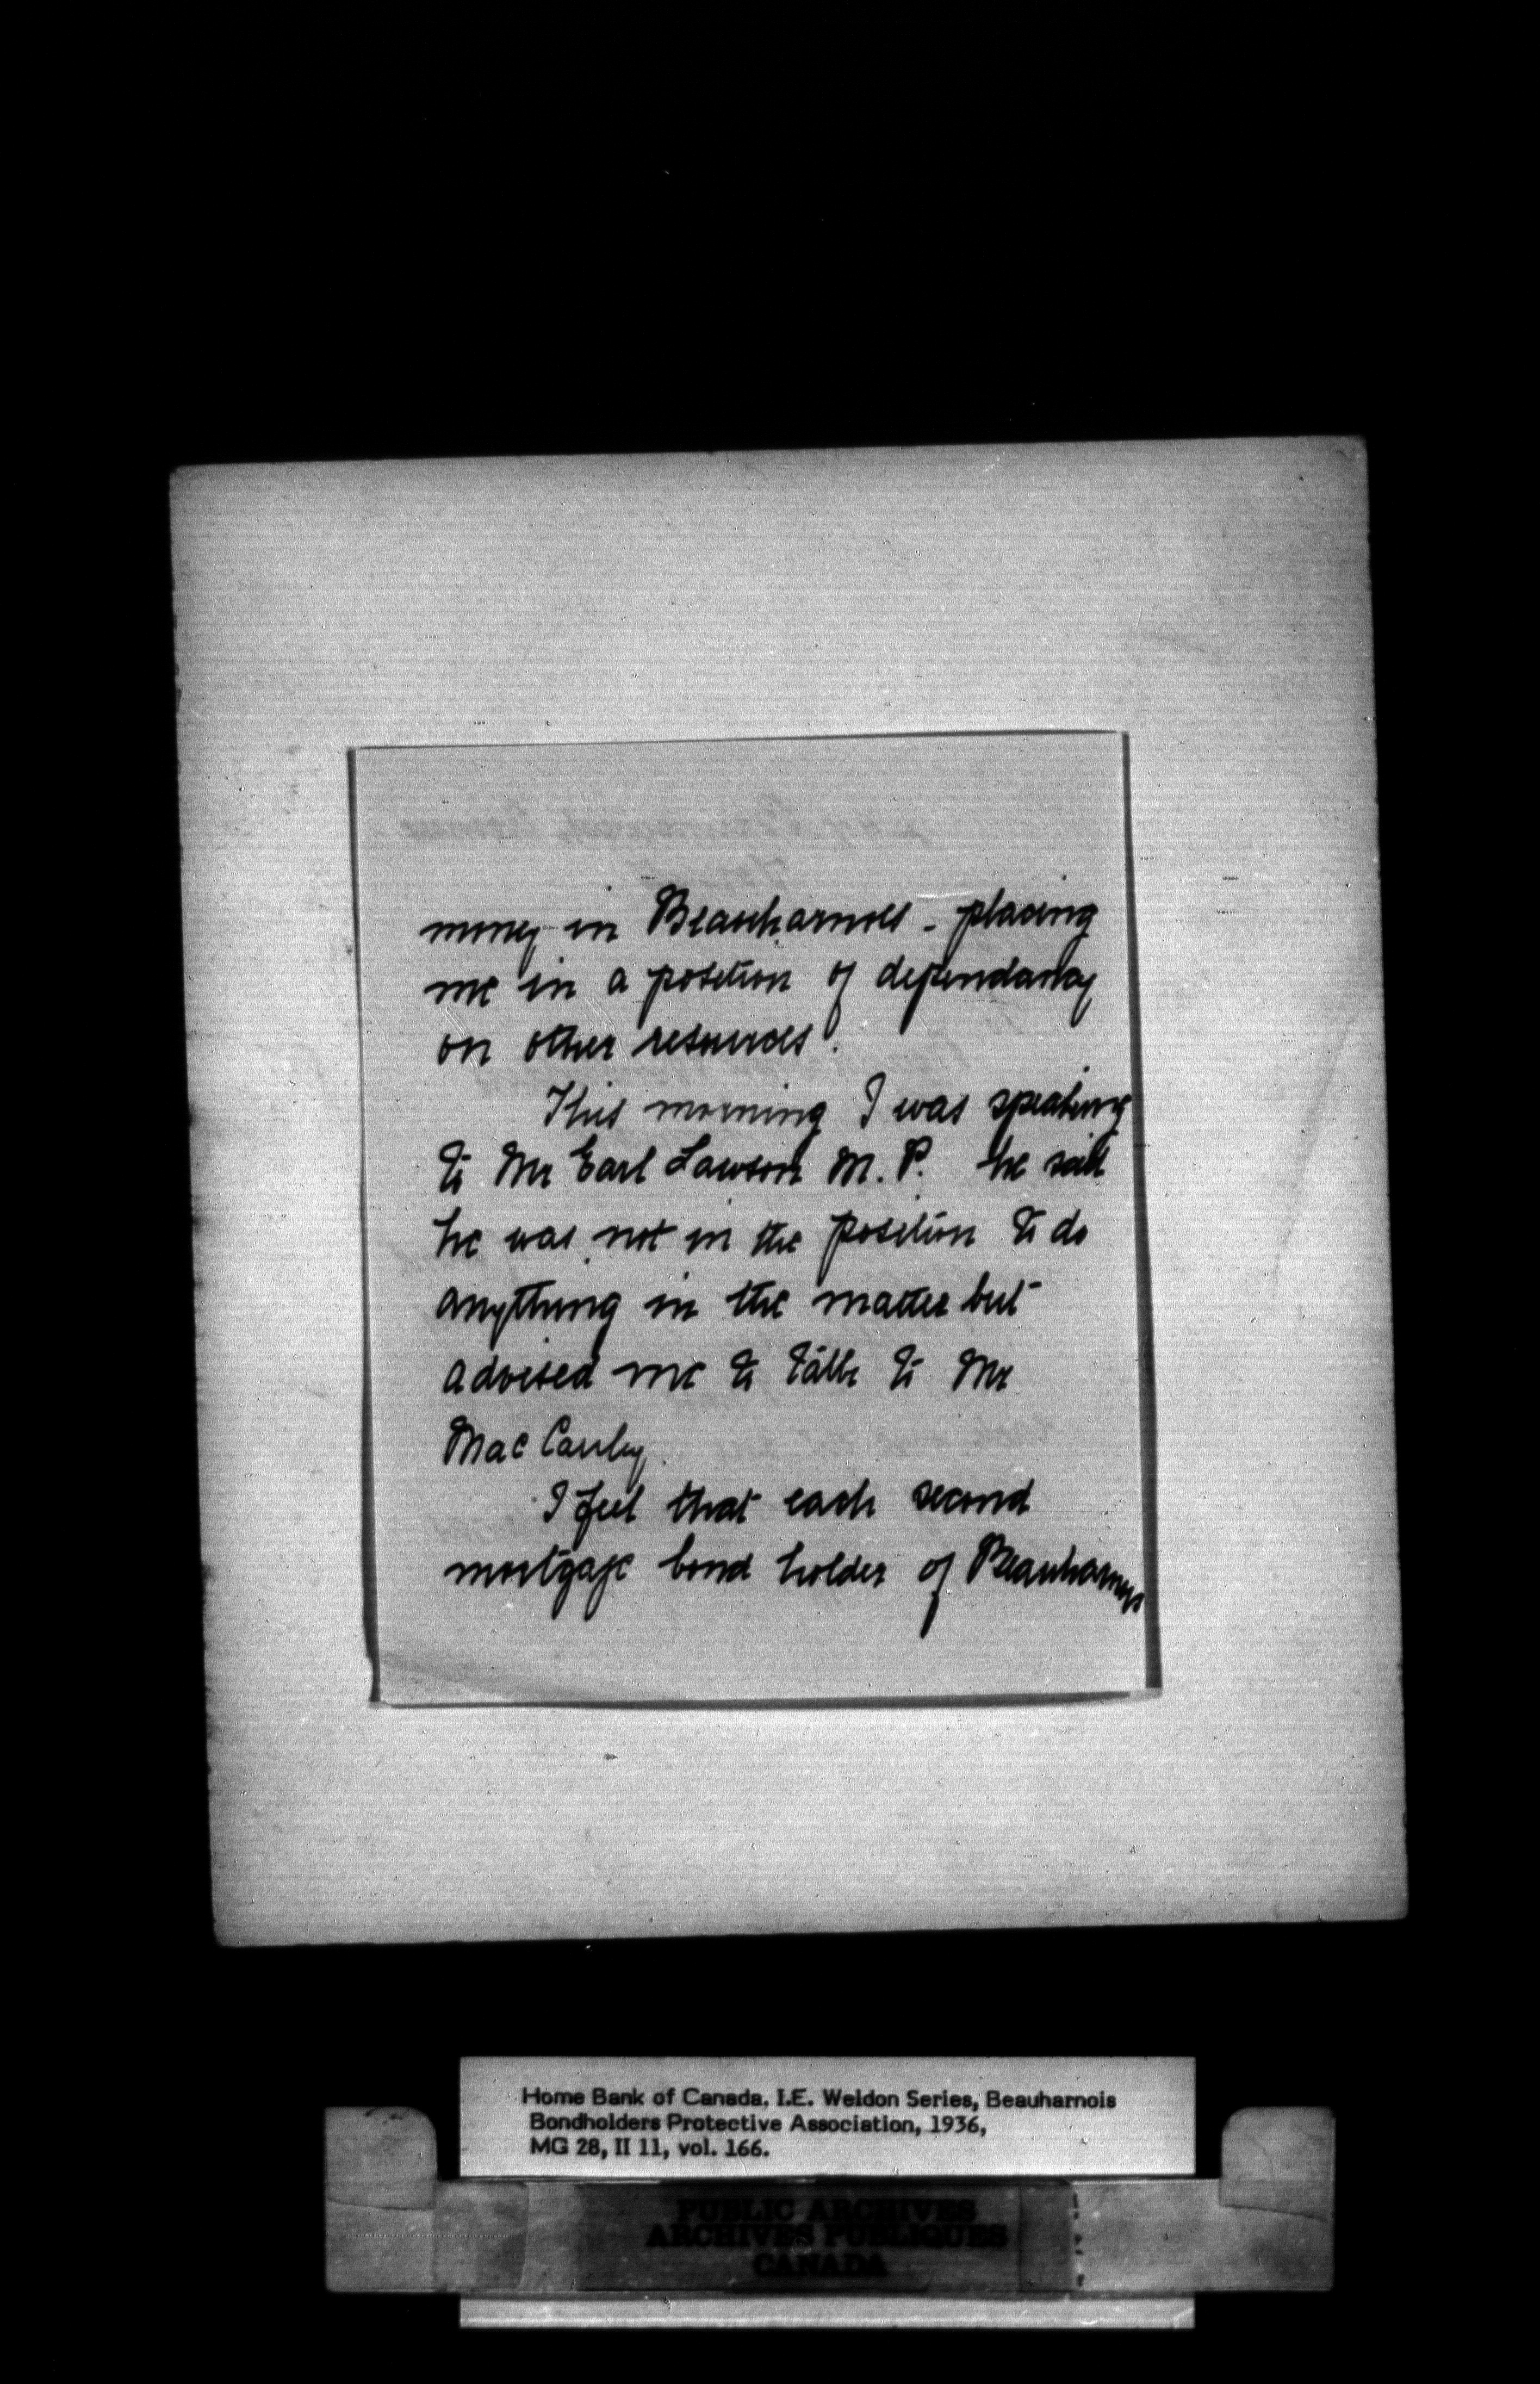 money in Beauharnois - placing
me in a position of dependancy
on other resources.
This morning I was speaking
to Mr Earl Lawson M.P. he said
he was not in the position to do
anything in the matter but
advised me to talk to Mr
Mac
I feel that each second
mortgage bond holder of Beauharnois
Home Bank of Canada, I.E. Weldon Series, Beauharnois
Bondholders Protective Association, 1936,
MG 28, II 11, vol. 166.
PUBLIC ARCHIVES
ARCHIVES PUBLIQUES
CANADA